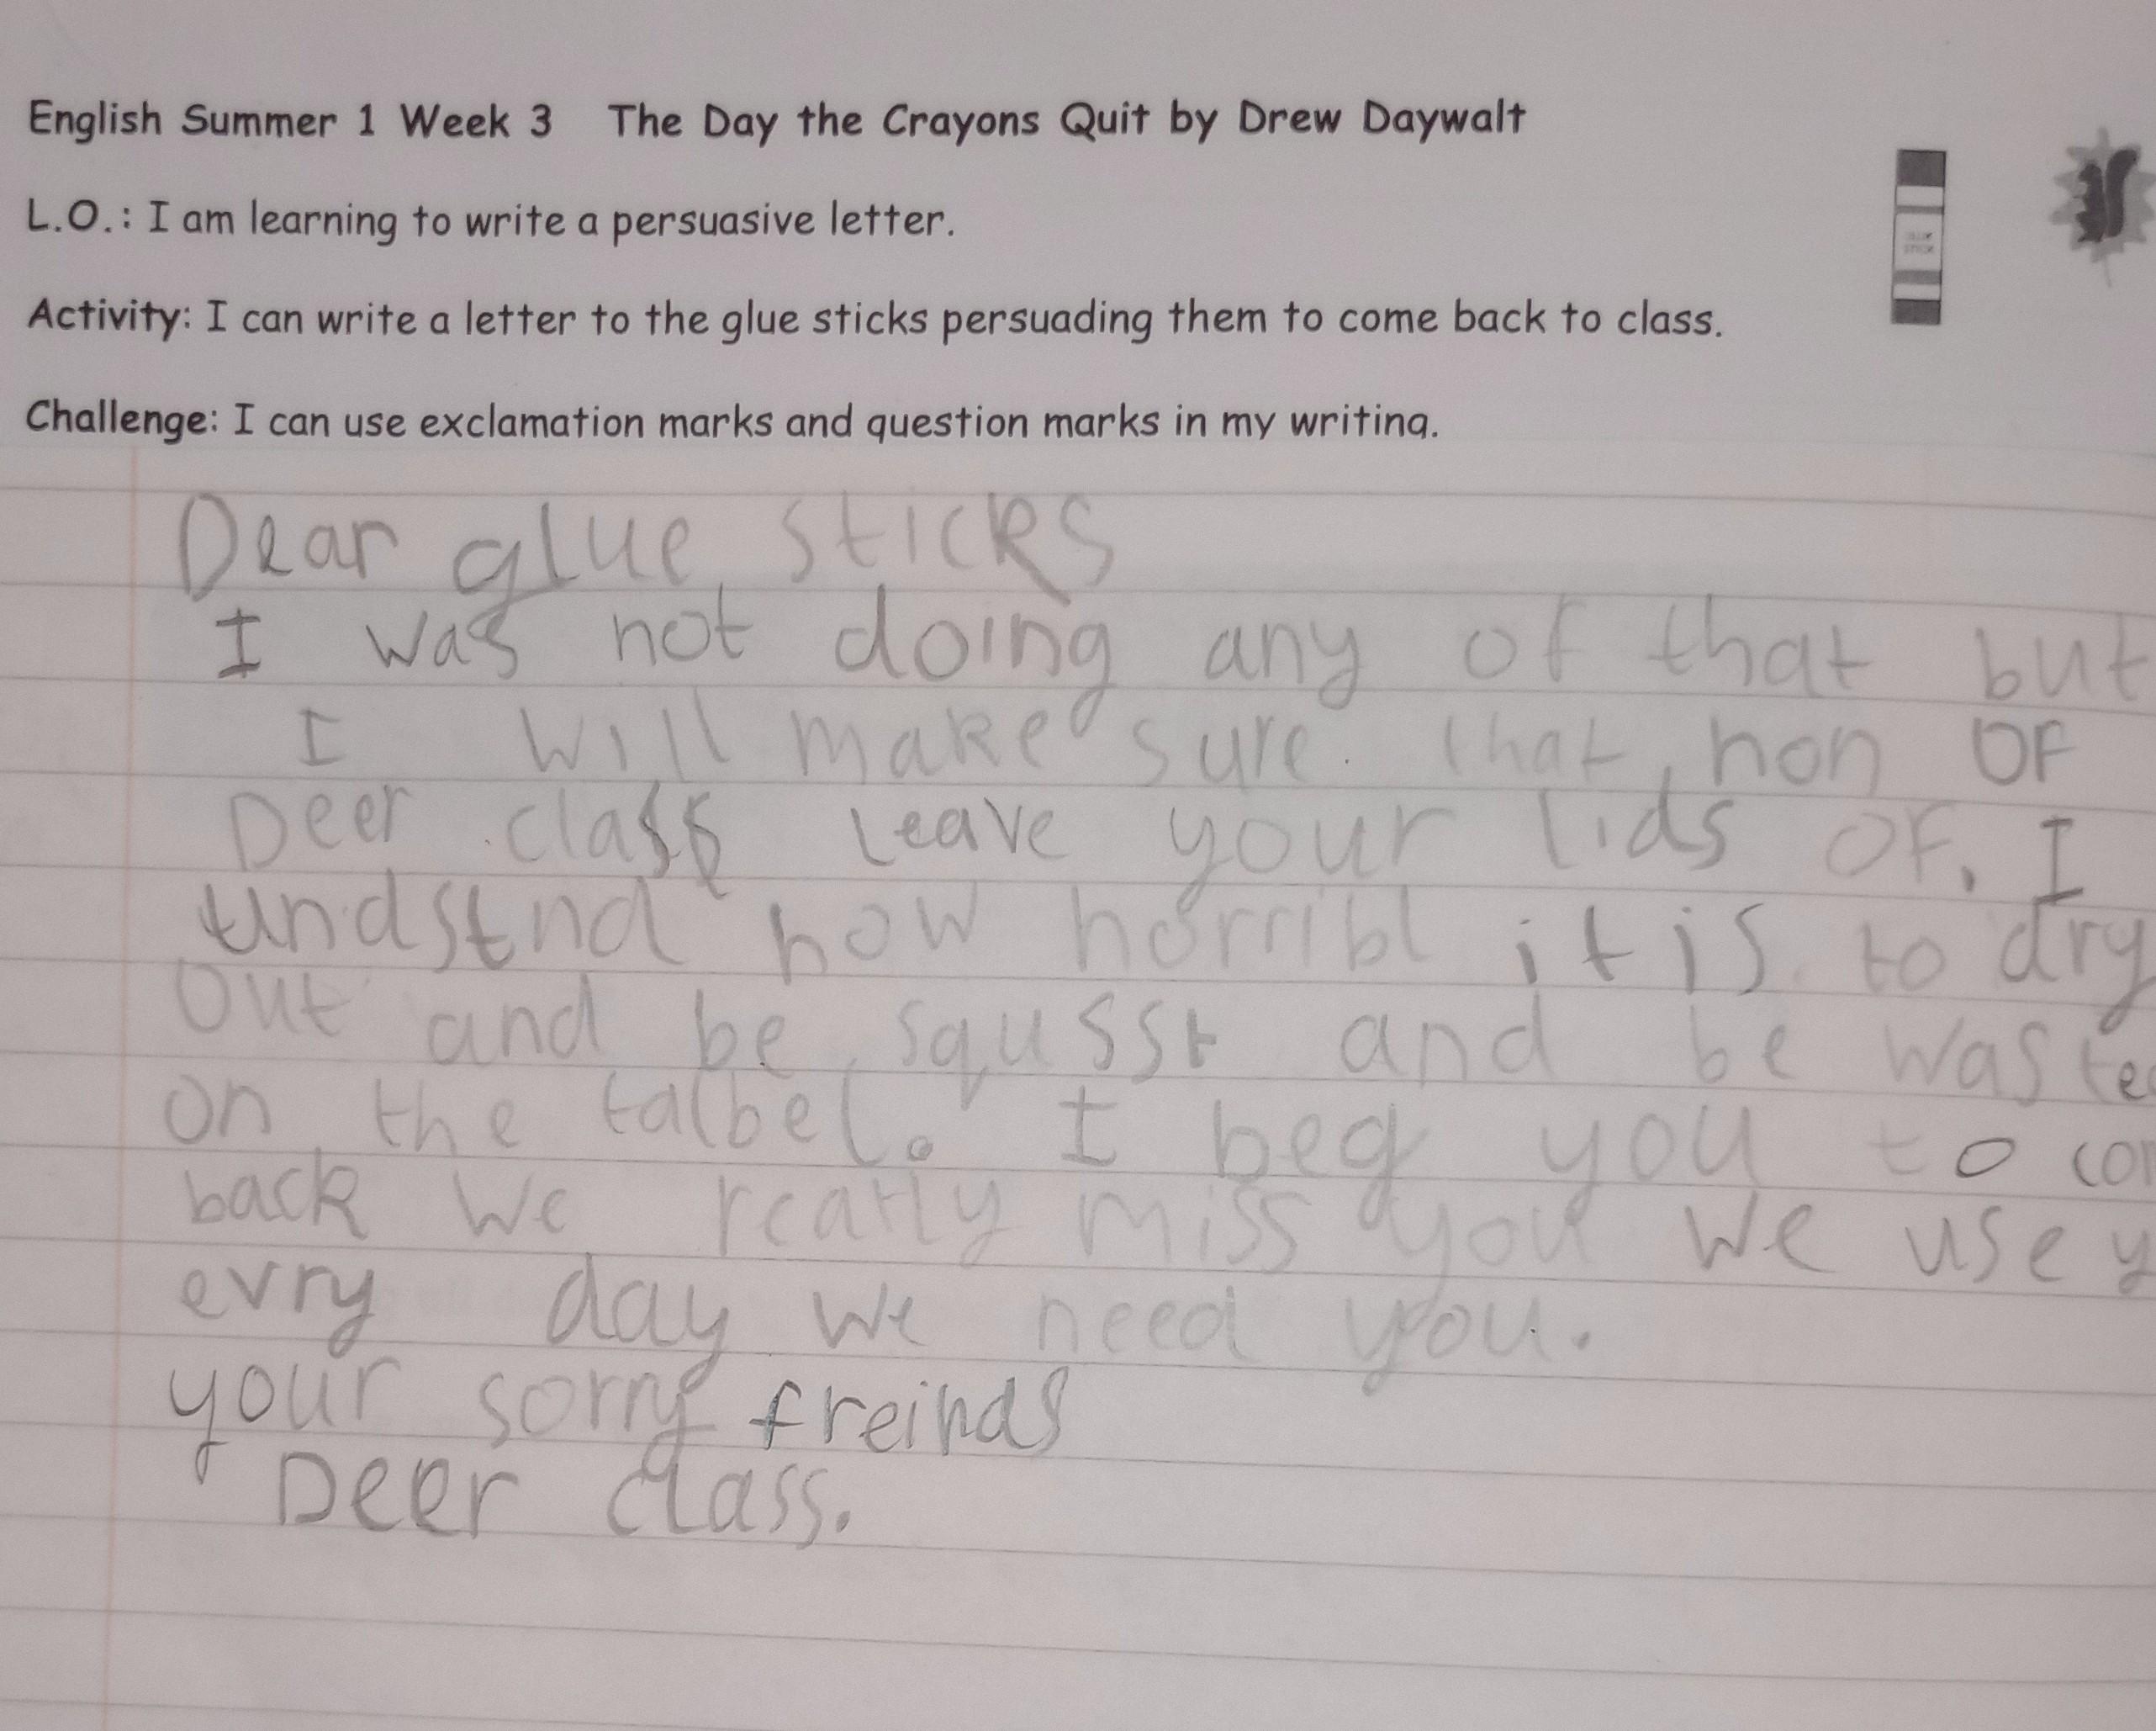 English Summer 1 Week 3 The Day the Crayons Quit by Drew Daywalt
L.O.: I am learning to write a persuasive letter.
GLUE STICK
Activity: I can write a letter to the glue sticks persuading them to come back to class.
Challenge: I can use exclamation marks and question marks in my writing.
Dear glue sticks
I was not doing any of that but
I will make sure that non OF
Deer class Leave your lids OF. I
undstnd how horribl it is to dry
out and be squsst and be waste
on the talbel. I beg you to
back we really miss you we use
evry day we need you.
your sorry freinds
Deer class.